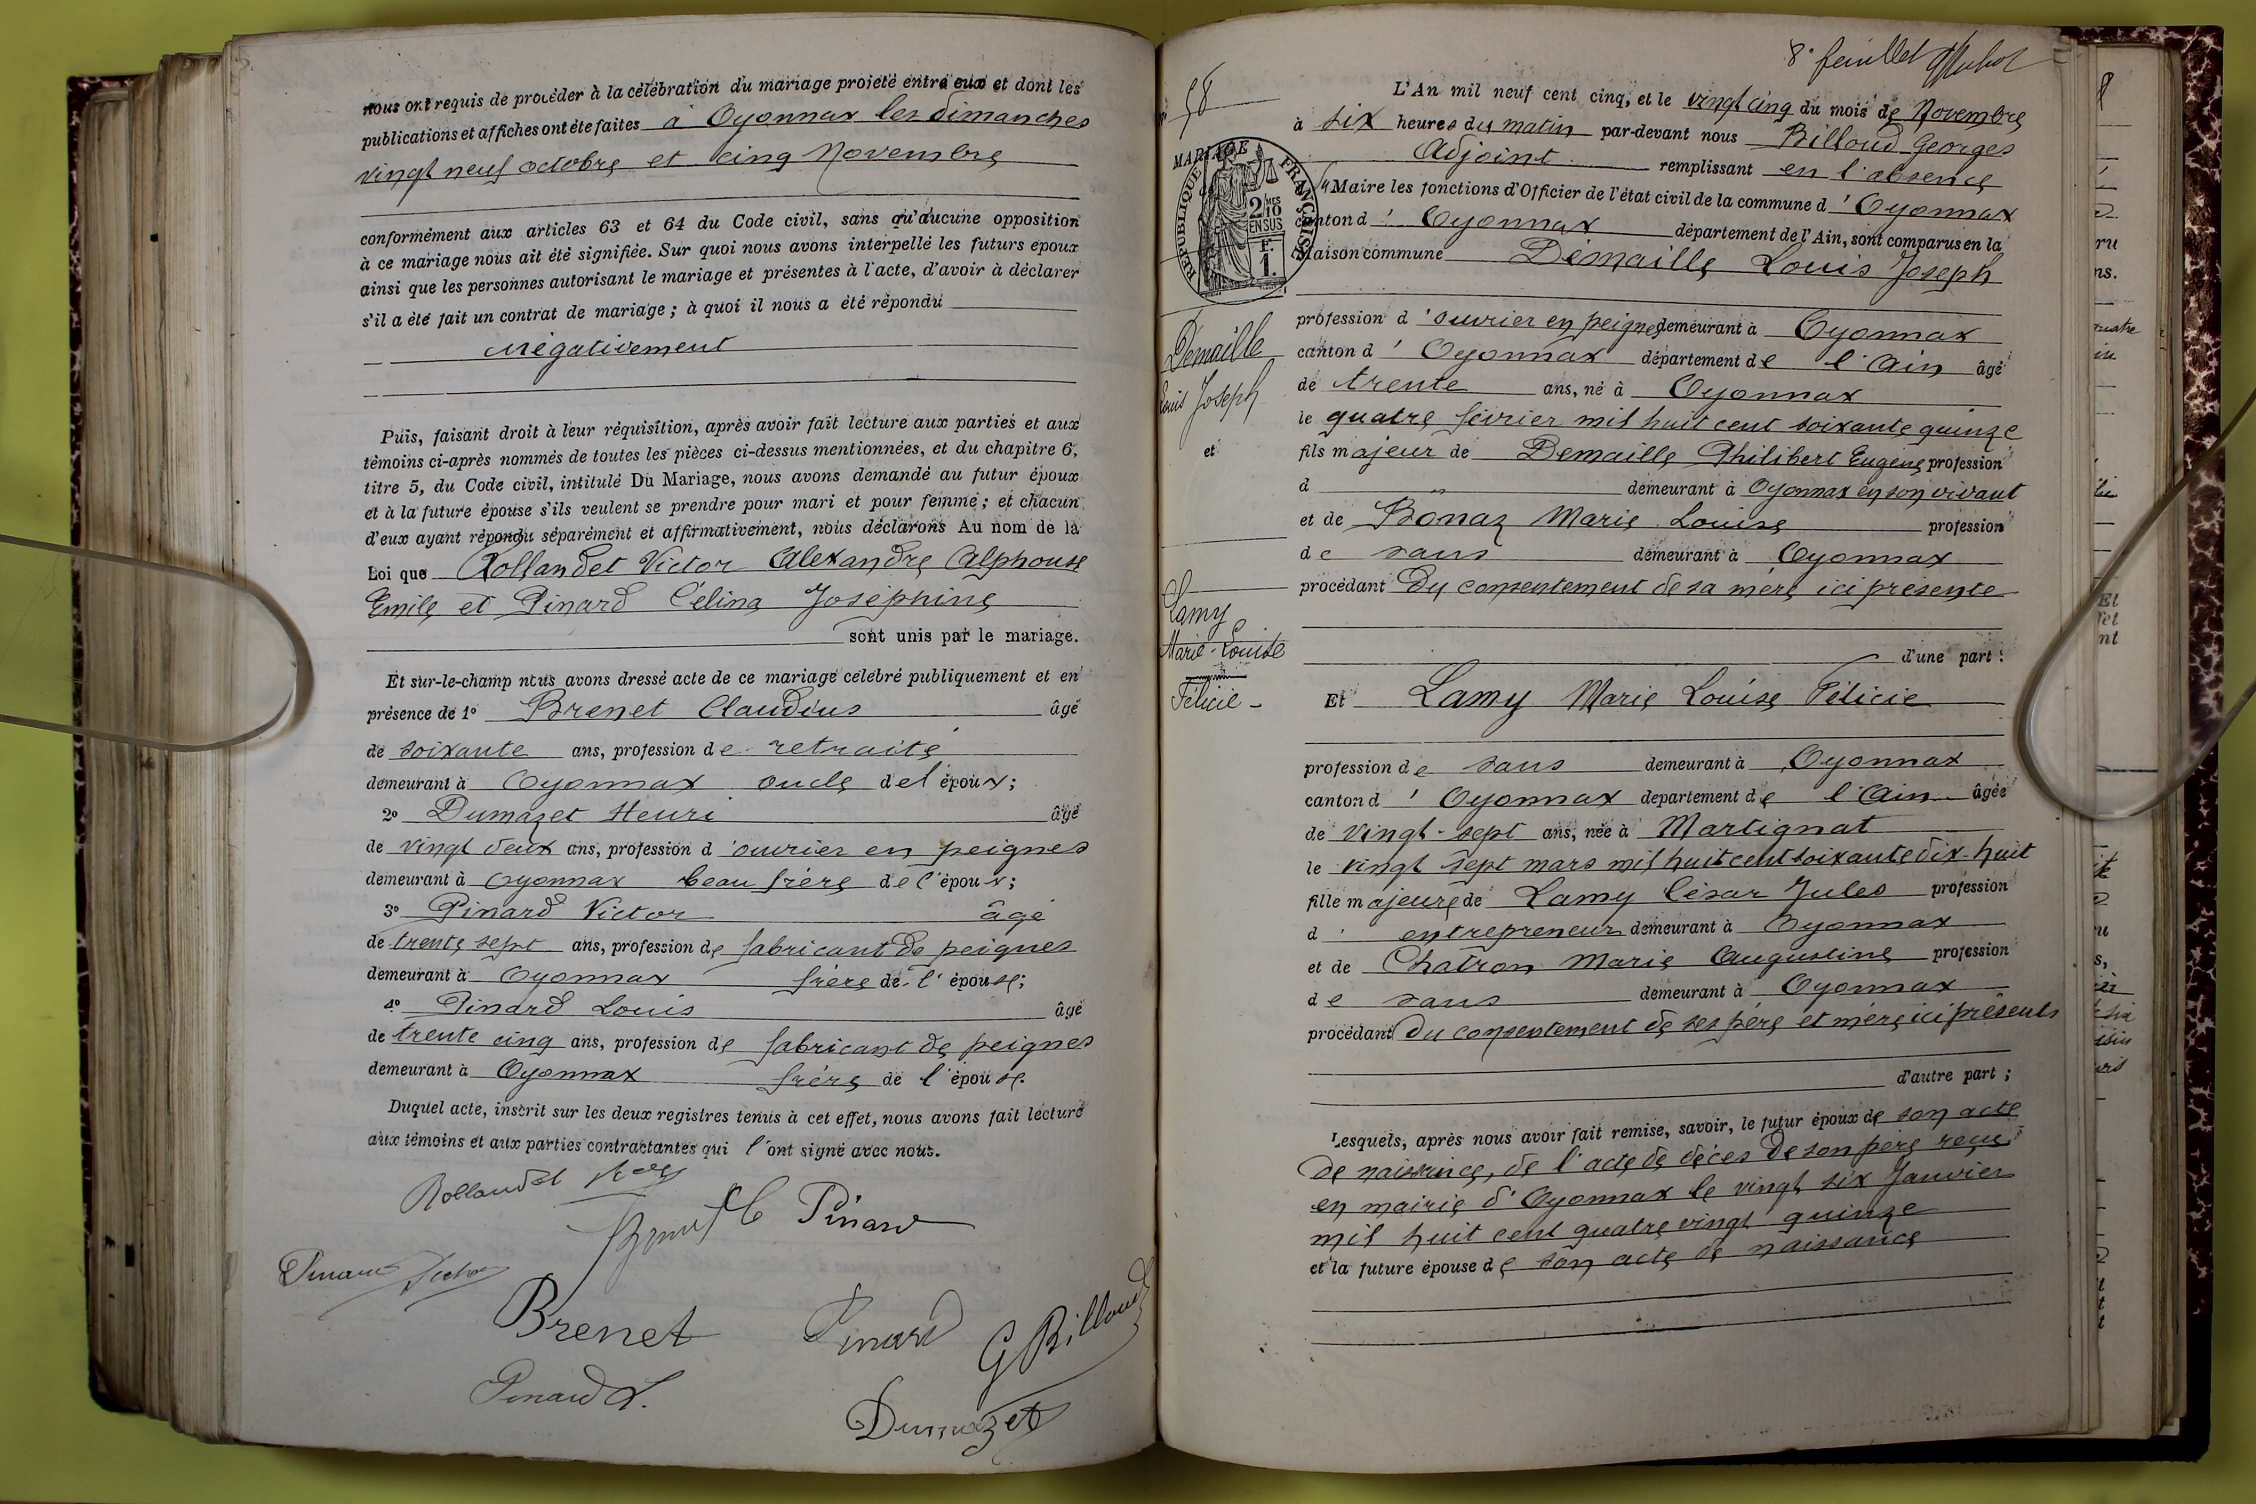 nous ont requis de procéder à la célébration du mariage projeté entre eux et dont les
publications et affiches ont été faites à Oyonnax les dimanches
vingt neuf octobre et cinq Novembre
conformément aux articles 63 et 64 du Code civil, sans qu'aucune opposition
à ce mariage nous ait été signifiée. Sur quoi nous avons interpellé les futurs époux
ainsi que les personnes autorisant le mariage et présentes à l'acte, d'avoir à déclarer
s'il a été fait un contrat de mariage ; à quoi il nous a été répondu
négativement
Puis, faisant droit à leur réquisition, après avoir fait lecture aux parties et aux
témoins ci-après nommés de toutes les pièces ci-dessus mentionnées, et du chapitre 6,
titre 5, du Code civil, intitulé Du Mariage, nous avons demandé au futur époux
et à la future épouse s'ils veulent se prendre pour mari et pour femme ; et chacun
d'eux ayant répondu séparément et affirmativement, nous déclarons Au nom de la
Loi que Rollandet Victor Alexandre Alphonse
Emile et Pinard Célina Joséphine
sont unis par le mariage.
Et sur-le-champ nous avons dressé acte de ce mariage célébré publiquement et en
présence de 1° Brenet Claudius âgé
de soixante ans, profession de retraité
demeurant à Oyonnax oncle de l'époux ;
2° Dumazet Henri âgé
de vingt deux ans, profession d'ouvrier en peignes
demeurant à Oyonnax beau frère de l'époux ;
3° Pinard Victor âgé
de trente sept ans, profession de fabricant de peignes
demeurant à Oyonnax frère de l'épouse ;
4° Pinard Louis âgé
de trente cinq ans, profession de fabricant de peignes
demeurant à Oyonnax frère de l'épouse.
Duquel acte, inscrit sur les deux registres tenus à cet effet, nous avons fait lecture
aux témoins et aux parties contractantes qui l'ont signé avec nous.
Rollandet
C Pinard
Pinard Victor
Brenet
Pinard
G Billoud
Pinard L.
Dumazet
8e feuillet
58
MARIAGE
RÉPUBLIQUE FRANÇAISE
2/10 MES
EN SUS
F.
1.
Demaille
Louis Joseph
et
Lamy
Marie-Louise
Félicie
L'An mil neuf cent cinq, et le vingt cinq du mois de Novembre
à six heures du matin par-devant nous Billoud Georges
Adjoint remplissant en l'absence
du Maire les fonctions d'Officier de l'état civil de la commune d'Oyonnax
canton d'Oyonnax département de l'Ain, sont comparus en la
Maison commune Demaille Louis Joseph
profession d'ouvrier en peignes demeurant à Oyonnax
canton d'Oyonnax département de l'Ain âgé
de trente ans, né à Oyonnax
le quatre février mil huit cent soixante quinze
fils majeur de Demaille Philibert Eugène profession
d " demeurant à Oyonnax en son vivant
et de Bonaz Marie Louise profession
de sans demeurant à Oyonnax
procédant Du consentement de sa mère ici présente
d'une part :
Et Lamy Marie Louise Félicie
profession de sans demeurant à Oyonnax
canton d'Oyonnax département de l'Ain âgée
de vingt-sept ans, née à Martignat
le vingt sept mars mil huit cent soixante dix-huit
fille majeure de Lamy César Jules profession
d'entrepreneur demeurant à Oyonnax
et de Chatron Marie Augustine profession
de sans demeurant à Oyonnax
procédant du consentement de ses père et mère ici présents
d'autre part ;
Lesquels, après nous avoir fait remise, savoir, le futur époux de son acte
de naissance, de l'acte de décès de son père reçu
en mairie d'Oyonnax le vingt six Janvier
mil huit cent quatre vingt quinze
et la future épouse de son acte de naissance